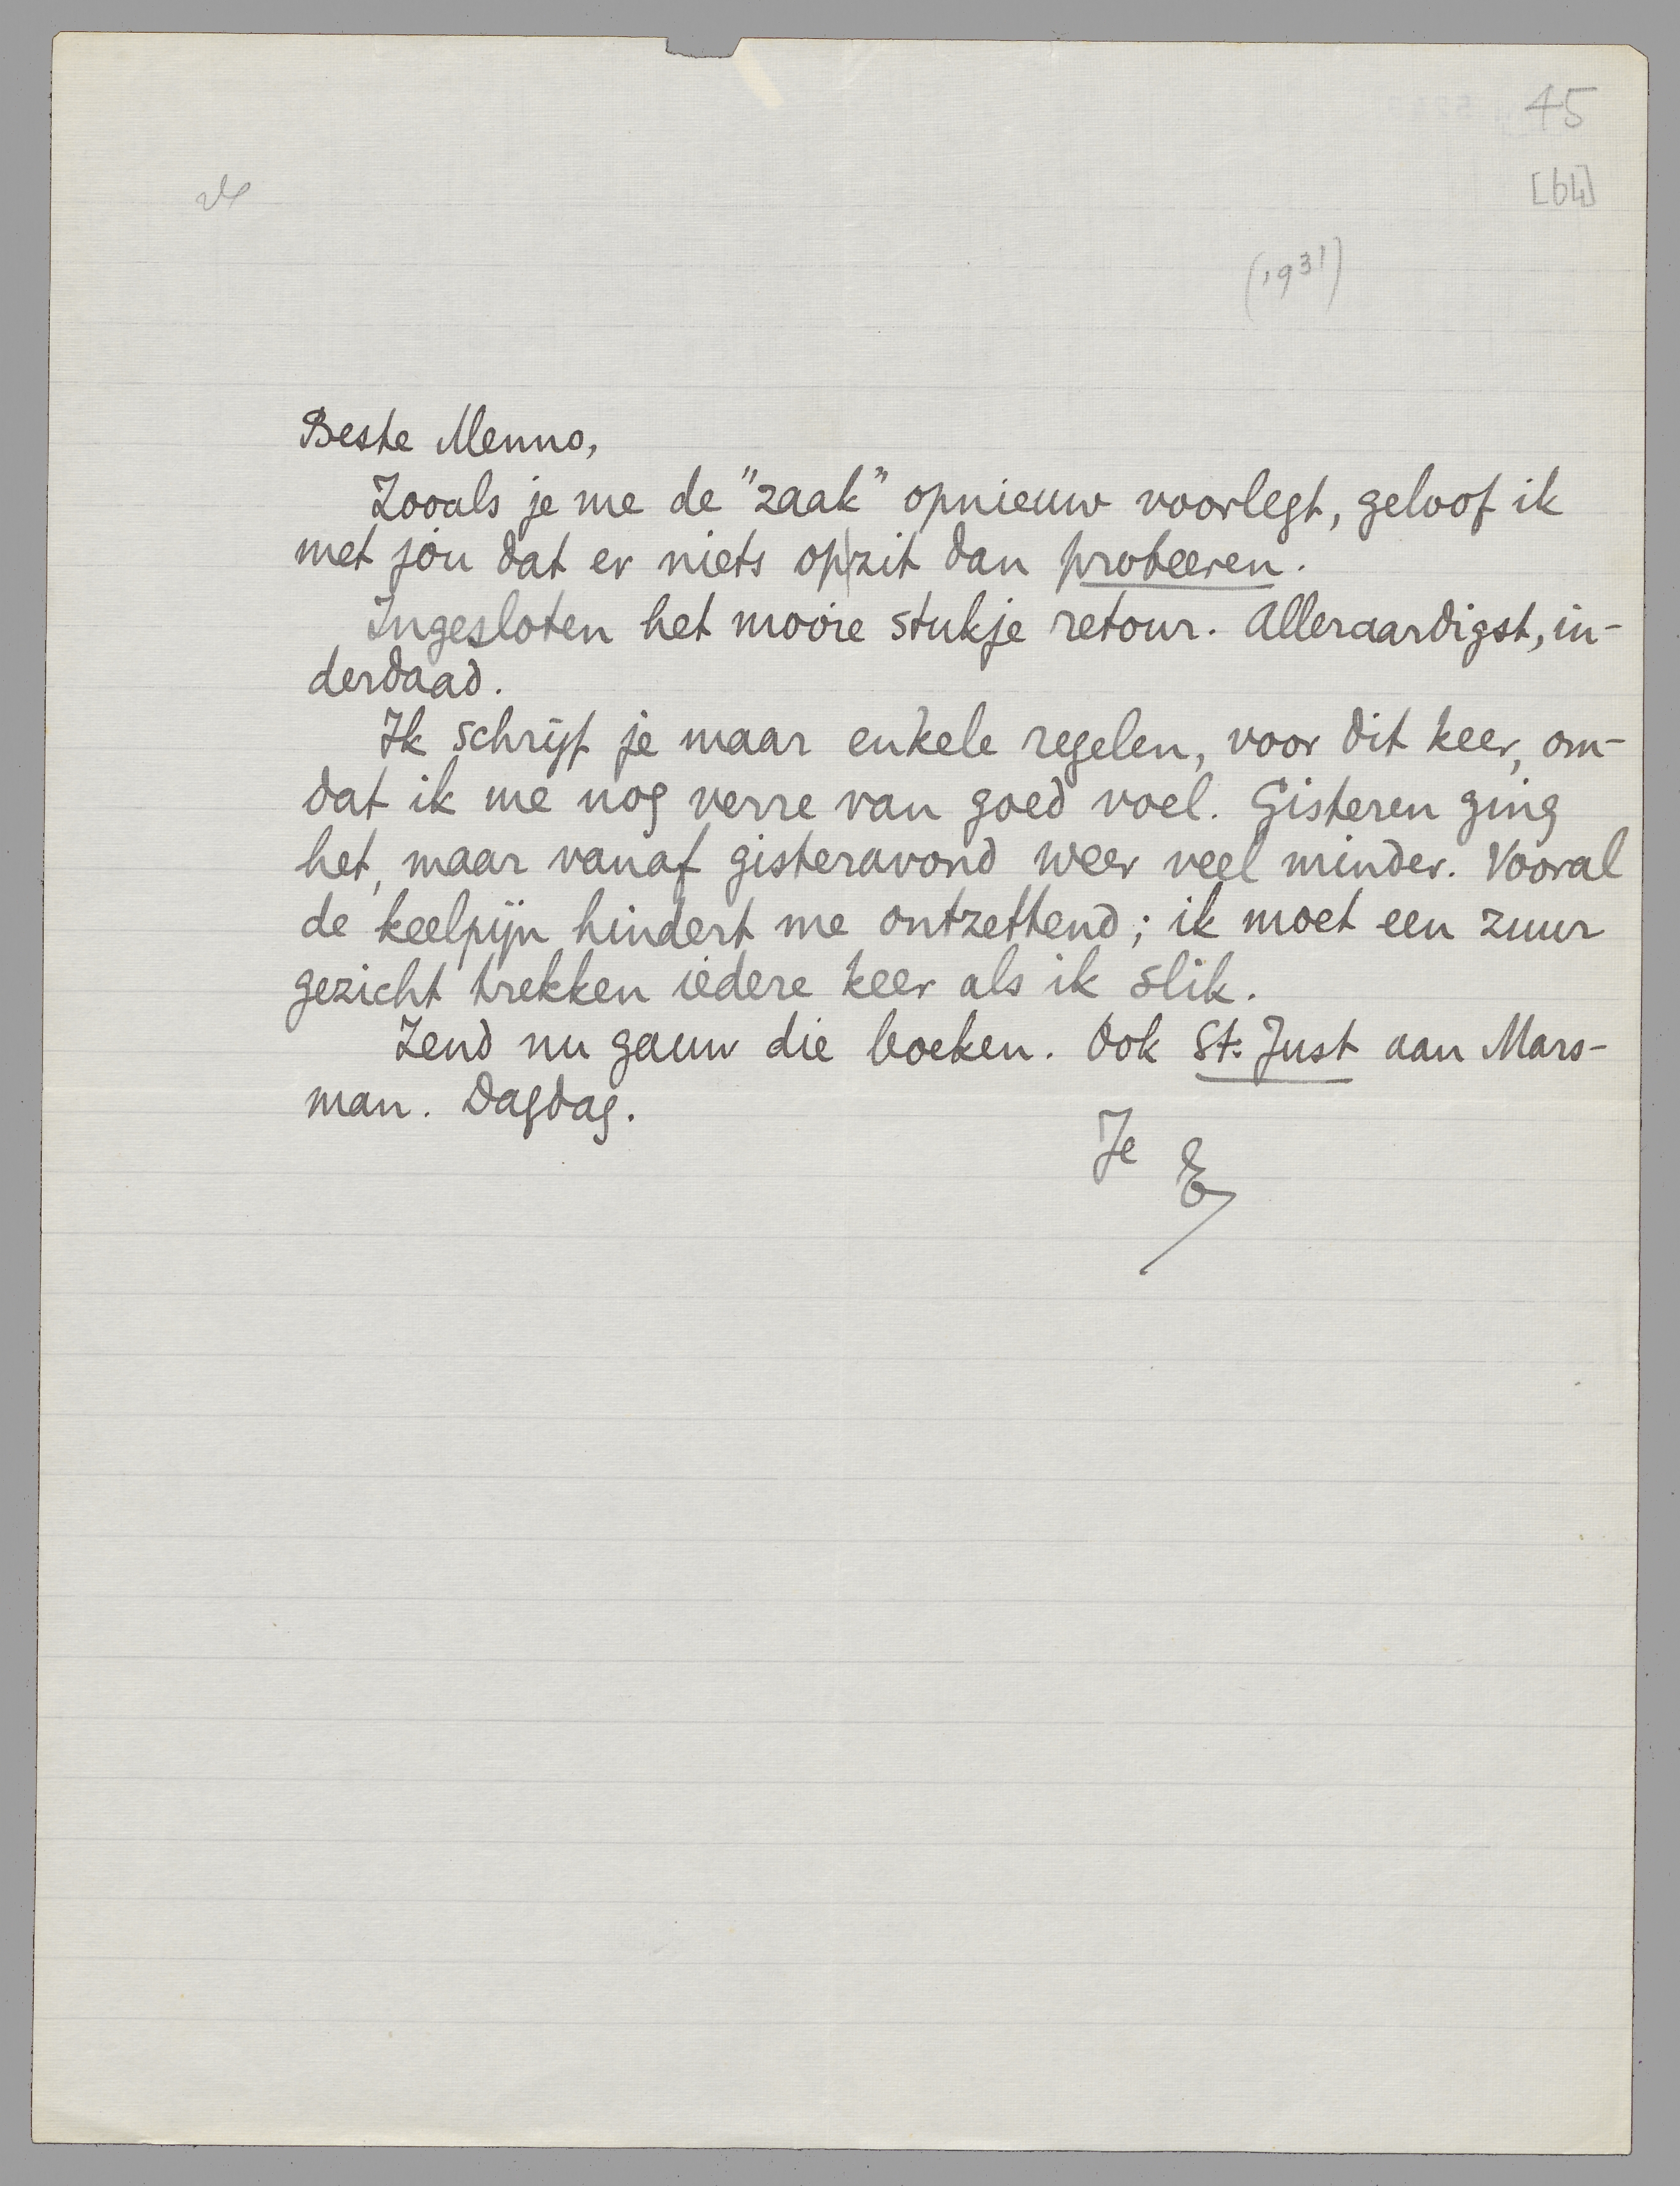 45
[64]
(1931)
Beste Menno,
Zooals je me de "zaak" opnieuw voorlegt, geloof ik
met jòu dat er niets op|zit dan probeeren.
Ingesloten het mooie stukje retour. Alleraardigst, in-
derdaad.
Ik schrijf je maar enkele regelen, voor dit keer, om-
dat ik me nog verre van goed voel. Gisteren ging
het, maar vanaf gisteravond weer veel minder. Vooral
de keelpijn hindert me ontzettend; ik moet een zuur
gezicht trekken iedere keer als ik slik.
Zend nu gauw die boeken. Ook St. Just aan Mars-
man. Dagdag.
Je E